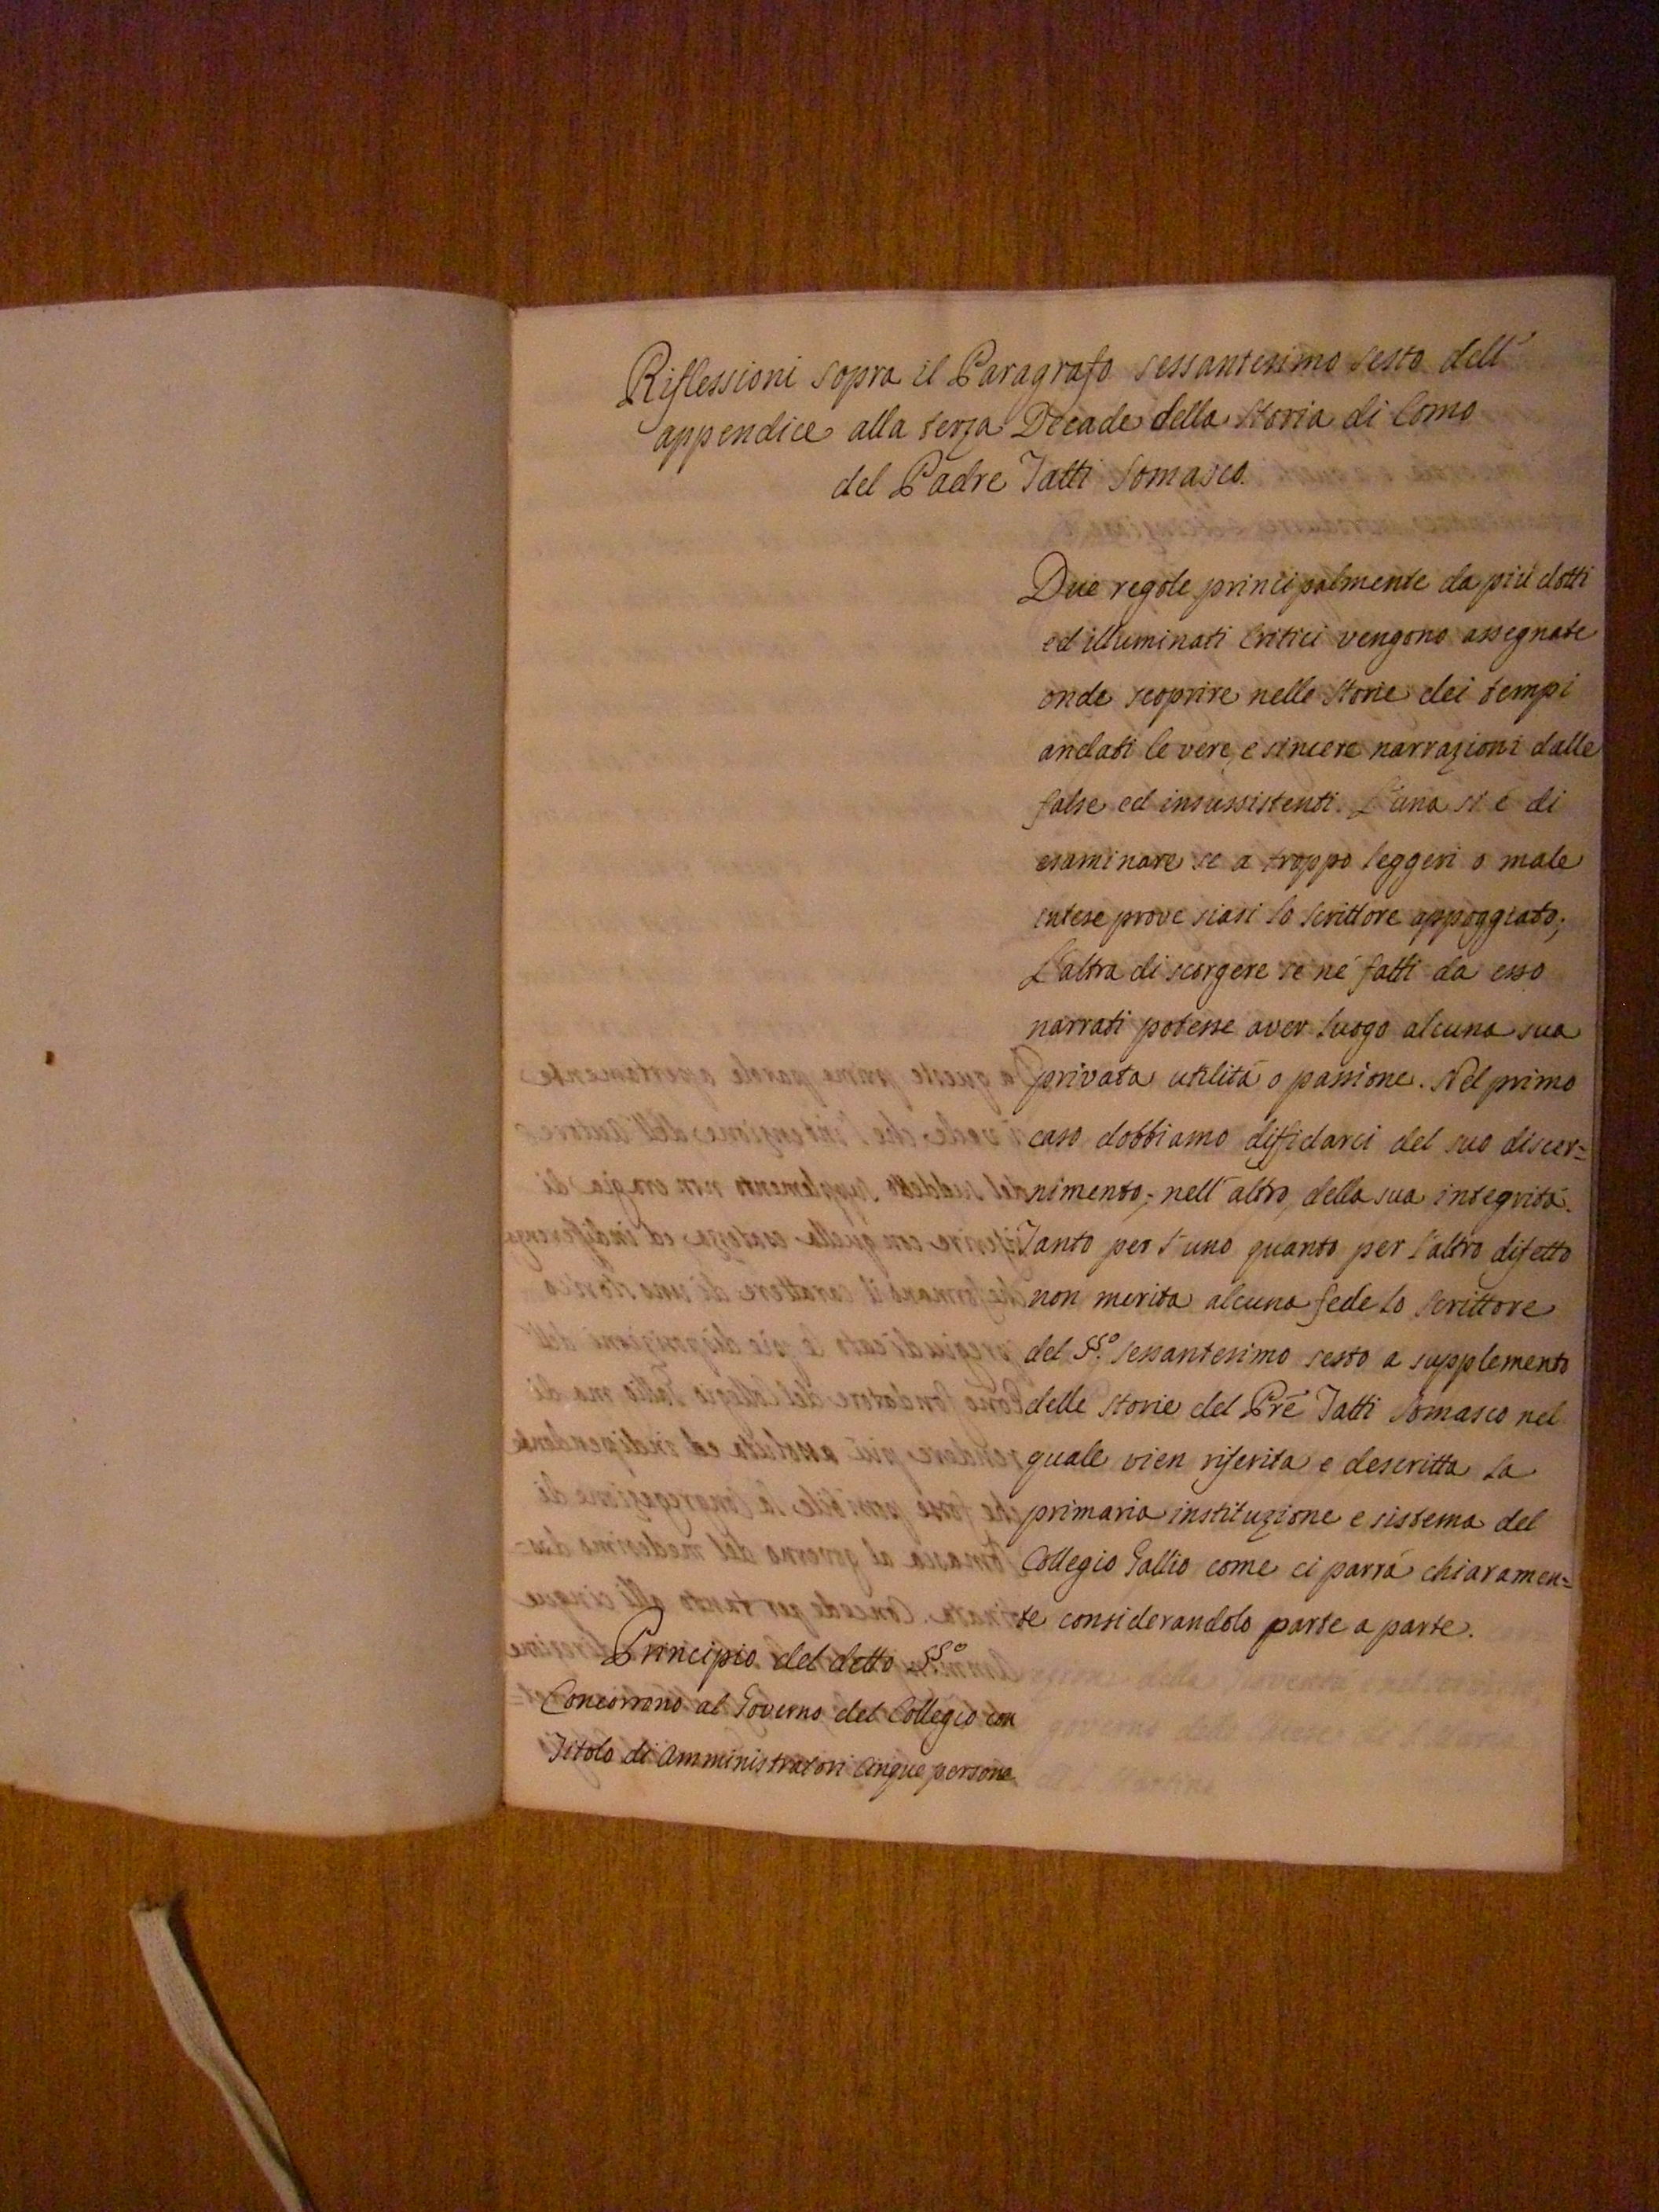 Riflessioni sopra il Paragrafo sessantesimo sesto dell'
appendice alla terza Decade della Storia di Como
del Padre Tatti Somasco.
Due regole principalmente da più dotti
ed illuminati Critici vengono assegnate
onde scoprire nelle Storie dei tempi
andati le vere, e sincere narrazioni dalle
false ed insussistenti. L'una si è di
esaminare se a troppo leggeri o male
intese prove siasi lo Scrittore appoggiato;
L'altra di scorgere se ne' fatti da esso
narrati potesse aver luogo alcuna sua
privata utilità o passione. Nel primo
caso dobbiamo diffidarci del suo discer=
nimento; nell'altro, della sua integrità.
Tanto per l'uno quanto per l'altro difetto
non merita alcuna fede lo Scrittore
del §§.º sessantesimo sesto a supplemento
delle Storie del Prẽ Tatti Somasco nel
quale vien riferita e descritta la
primaria instituzione e sistema del
Collegio Gallio come ci parrà chiaramen=
te considerandolo parte a parte.
Principio del detto §§º
Concorrono al Governo del Collegio con
Titolo di Amministratori Cinque persone